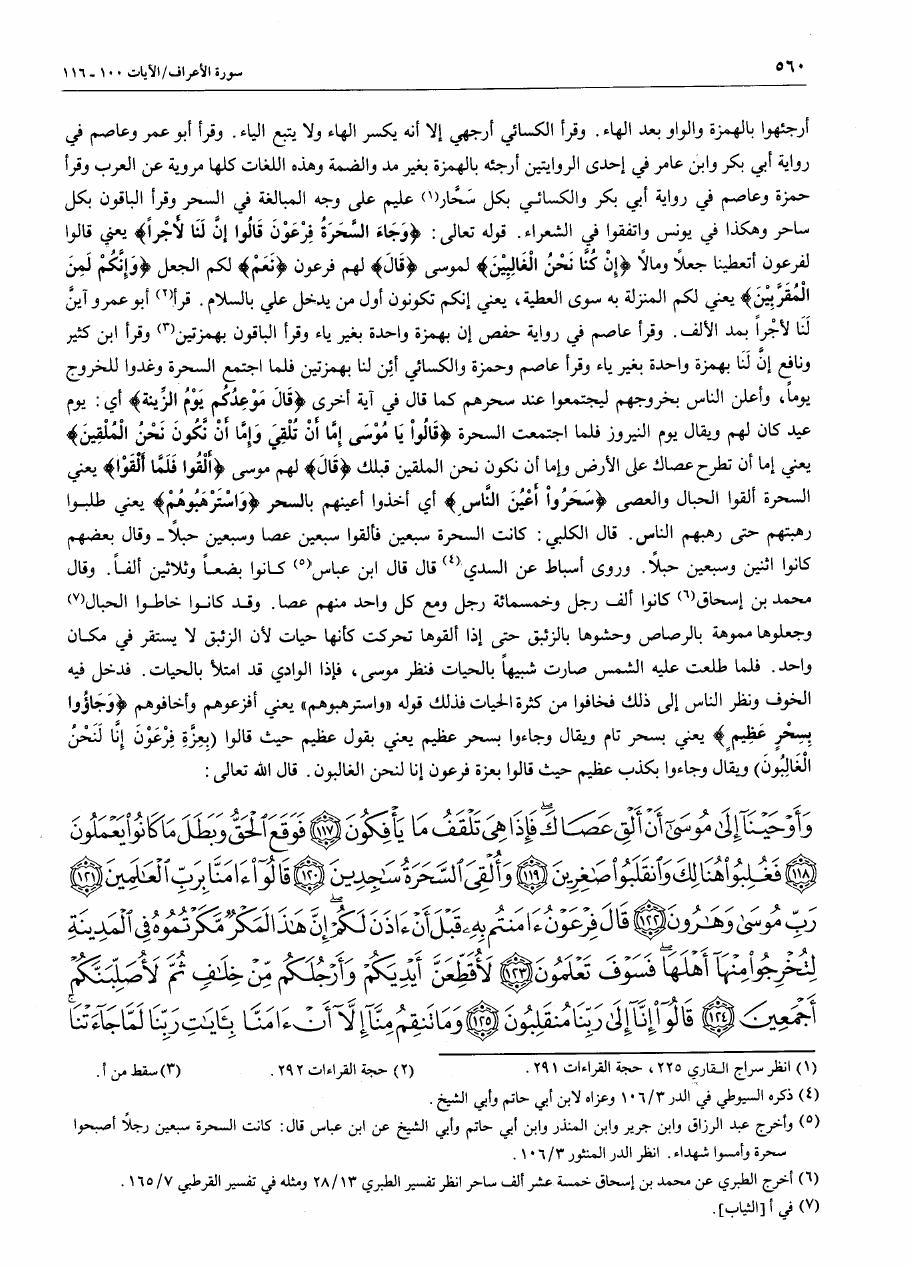 ٥٦٠
سورة الأعراف/الآيات ١٠٠ - ١١٦
أرجئهوا بالهمزة والواو بعد الهاء. وقرأ الكسائي أرجهي إلا أنه يكسر الهاء ولا يتبع الياء. وقرأ أبو عمر وعاصم في
رواية أبي بكر وابن عامر في إحدى الروايتين أرجئه بالهمزة بغير مد والضمة وهذه اللغات كلها مروية عن العرب وقرأ
حمزة وعاصم في رواية أبي بكر والكسائي بكل سَحَّار(١) عليم على وجه المبالغة في السحر وقرأ الباقون بكل
ساحر وهكذا في يونس واتفقوا في الشعراء. قوله تعالى: ﴿وَجَاءَ السَّحَرَةُ فِرْعَوْنَ قَالُوا إنَّ لَنَا لأَجْراً﴾ يعني قالوا
لفرعون أتعطينا جعلاً ومالاً ﴿إنْ كُنَّا نَحْنُ الْغَالِبِيْنَ﴾ لموسى ﴿قَالَ﴾ لهم فرعون ﴿نَعَمْ﴾ لكم الجعل ﴿وَإنَّكُمْ لَمِنَ
الْمُقَرَّبِيْنَ﴾ يعني لكم المنزلة به سوى العطية، يعني إنكم تكونون أول من يدخل علي بالسلام. قرأ(٢) أبو عمرو آينَّ
لَنَا لأجْراً بمد الألف. وقرأ عاصم في رواية حفص إن بهمزة واحدة بغير ياء وقرأ الباقون بهمزتين(٣) وقرأ ابن كثير
ونافع إنَّ لَنَا بهمزة واحدة بغير ياء وقرأ عاصم وحمزة والكسائي أئِن لنا بهمزتين فلما اجتمع السحرة وغدوا للخروج
يوماً، وأعلن الناس بخروجهم ليجتمعوا عند سحرهم كما قال في آية أخرى ﴿قَالَ مَوْعِدُكُم يَوْمُ الزِّينة﴾ أي: يوم
عيد كان لهم ويقال يوم النيروز فلما اجتمعت السحرة ﴿قَالُواْ يَا مُوْسَى إمَّا أنْ تُلْقِيَ وَإمَّا أنْ نَّكُونَ نَحْنُ المُلْقِينَ﴾
يعني إما أن تطرح عصاك على الأرض وإما أن نكون نحن الملقين قبلك ﴿قَالَ﴾ لهم موسى ﴿ألْقُوا فَلَمَّا ألْقَوْا﴾ يعني
السحرة ألقوا الحبال والعصى ﴿سَحَرُواْ أعْيُنَ النَّاسِ﴾ أي أخذوا أعينهم بالسحر ﴿وَاسْتَرْهَبُوهُمْ﴾ يعني طلبوا
رهبتهم حتى رهبهم الناس. قال الكلبي: كانت السحرة سبعين فألقوا سبعين عصا وسبعين حبلاً - وقال بعضهم
كانوا اثنين وسبعين حبلاً. وروى أسباط عن السدي(٤) قال قال ابن عباس(٥) كانوا بضعاً وثلاثين ألفاً. وقال
محمد بن إسحاق(٦) كانوا ألف رجل وخمسمائة رجل ومع كل واحد منهم عصا. وقد كانوا خاطوا الحبال(٧)
وجعلوها مموهة بالرصاص وحشوها بالزئبق حتى إذا ألقوها تحركت كأنها حيات لأن الزئبق لا يستقر في مكان
واحد. فلما طلعت عليه الشمس صارت شبيهاً بالحيات فنظر موسى، فإذا الوادي قد امتلأ بالحيات. فدخل فيه
الخوف ونظر الناس إلى ذلك فخافوا من كثرة الحيات فذلك قوله «واسترهبوهم» يعني أفزعوهم وأخافوهم ﴿وَجَاؤُوا
بِسِحْرٍ عَظِيمٍ﴾ يعني بسحر تام ويقال وجاءوا بسحر عظيم يعني بقول عظيم حيث قالوا (بِعِزَّةِ فِرْعَوْنَ إنَّا لَنَحْنُ
الْغَالِبُونَ) ويقال وجاءوا بكذب عظيم حيث قالوا بعزة فرعون إنا لنحن الغالبون. قال الله تعالى:
وَأَوْحَيْنَآ إِلَىٰ مُوسَىٰٓ أَنْ أَلْقِ عَصَاكَ ۖ فَإِذَا هِىَ تَلْقَفُ مَا يَأْفِكُونَ ﴿١١٧﴾ فَوَقَعَ ٱلْحَقُّ وَبَطَلَ مَا كَانُوا۟ يَعْمَلُونَ
﴿١١٨﴾ فَغُلِبُوا۟ هُنَالِكَ وَٱنقَلَبُوا۟ صَٰغِرِينَ ﴿١١٩﴾ وَأُلْقِىَ ٱلسَّحَرَةُ سَٰجِدِينَ ﴿١٢٠﴾ قَالُوٓا۟ ءَامَنَّا بِرَبِّ ٱلْعَٰلَمِينَ ﴿١٢١﴾
رَبِّ مُوسَىٰ وَهَٰرُونَ ﴿١٢٢﴾ قَالَ فِرْعَوْنُ ءَامَنتُم بِهِۦ قَبْلَ أَنْ ءَاذَنَ لَكُمْ ۖ إِنَّ هَٰذَا لَمَكْرٌ مَّكَرْتُمُوهُ فِى ٱلْمَدِينَةِ
لِتُخْرِجُوا۟ مِنْهَآ أَهْلَهَا ۖ فَسَوْفَ تَعْلَمُونَ ﴿١٢٣﴾ لَأُقَطِّعَنَّ أَيْدِيَكُمْ وَأَرْجُلَكُم مِّنْ خِلَٰفٍ ثُمَّ لَأُصَلِّبَنَّكُمْ
أَجْمَعِينَ ﴿١٢٤﴾ قَالُوٓا۟ إِنَّآ إِلَىٰ رَبِّنَا مُنقَلِبُونَ ﴿١٢٥﴾ وَمَا تَنقِمُ مِنَّآ إِلَّآ أَنْ ءَامَنَّا بِـَٔايَٰتِ رَبِّنَا لَمَّا جَآءَتْنَا ۚ
(١) انظر سراج القاري ٢٢٥، حجة القراءات ٢٩١. (٢) حجة القراءات ٢٩٢. (٣) سقط من أ.
(٤) ذكره السيوطي في الدر ١٠٦/٣ وعزاه لابن أبي حاتم وأبي الشيخ.
(٥) وأخرج عبد الرزاق وابن جرير وابن المنذر وابن أبي حاتم وأبي الشيخ عن ابن عباس قال: كانت السحرة سبعين رجلاً أصبحوا
سحرة وأمسوا شهداء. انظر الدر المنثور ١٠٦/٣.
(٦) أخرج الطبري عن محمد بن إسحاق خمسة عشر ألف ساحر انظر تفسير الطبري ٢٨/١٣ ومثله في تفسير القرطبي ١٦٥/٧.
(٧) في أ [الثياب].